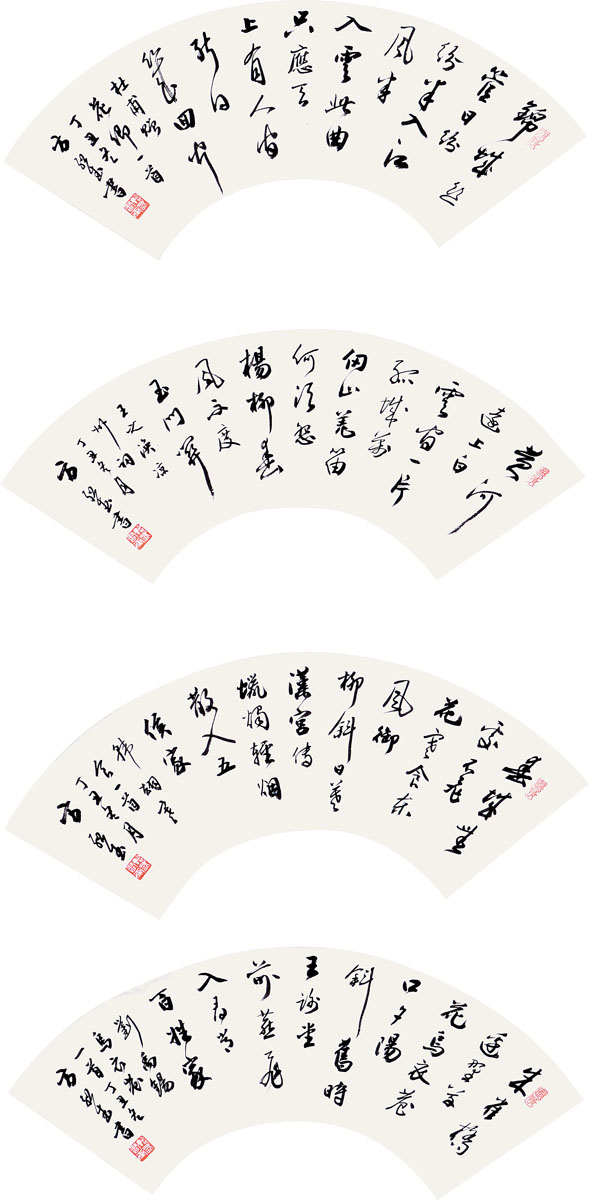 錦城絲
管日紛
紛半入江
風半
入雲此曲
只應天
上有人間
能得
幾回聞
杜甫贈
花卿一首
丁丑冬
書
黃河
遠上白
雲間一片
孤城萬
仞山羌笛
何須怨
楊柳春
風不度
玉門關
王之渙涼
州詞
丁丑冬月
書
春城無
處不飛
花寒食東
風御
柳斜日暮
漢宮傳
蠟燭輕烟
散入五
侯家
韓翃寒
食一首
丁丑冬月
朱雀橋
邊野草
花烏衣巷
口夕陽
斜舊時
王謝堂
前燕飛
入尋常
百姓家
劉禹錫
烏衣巷
一首丁丑冬
書